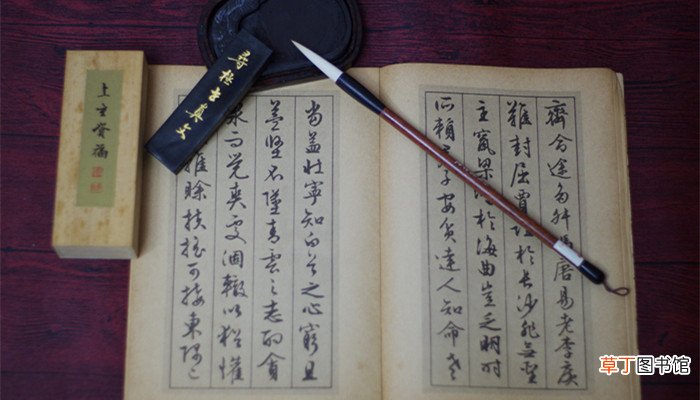 齊命途多舛馮唐易老李廣
難封屈賈誼於長沙非無聖
主竄梁鴻於海曲豈乏明時
所賴君子安貧達人知命老
當益壯寧知白首之心窮且
益堅不墜青雲之志酌貪
泉而覺爽處涸轍以猶懽
雖賒扶搖可接東隅已
草丁图书馆